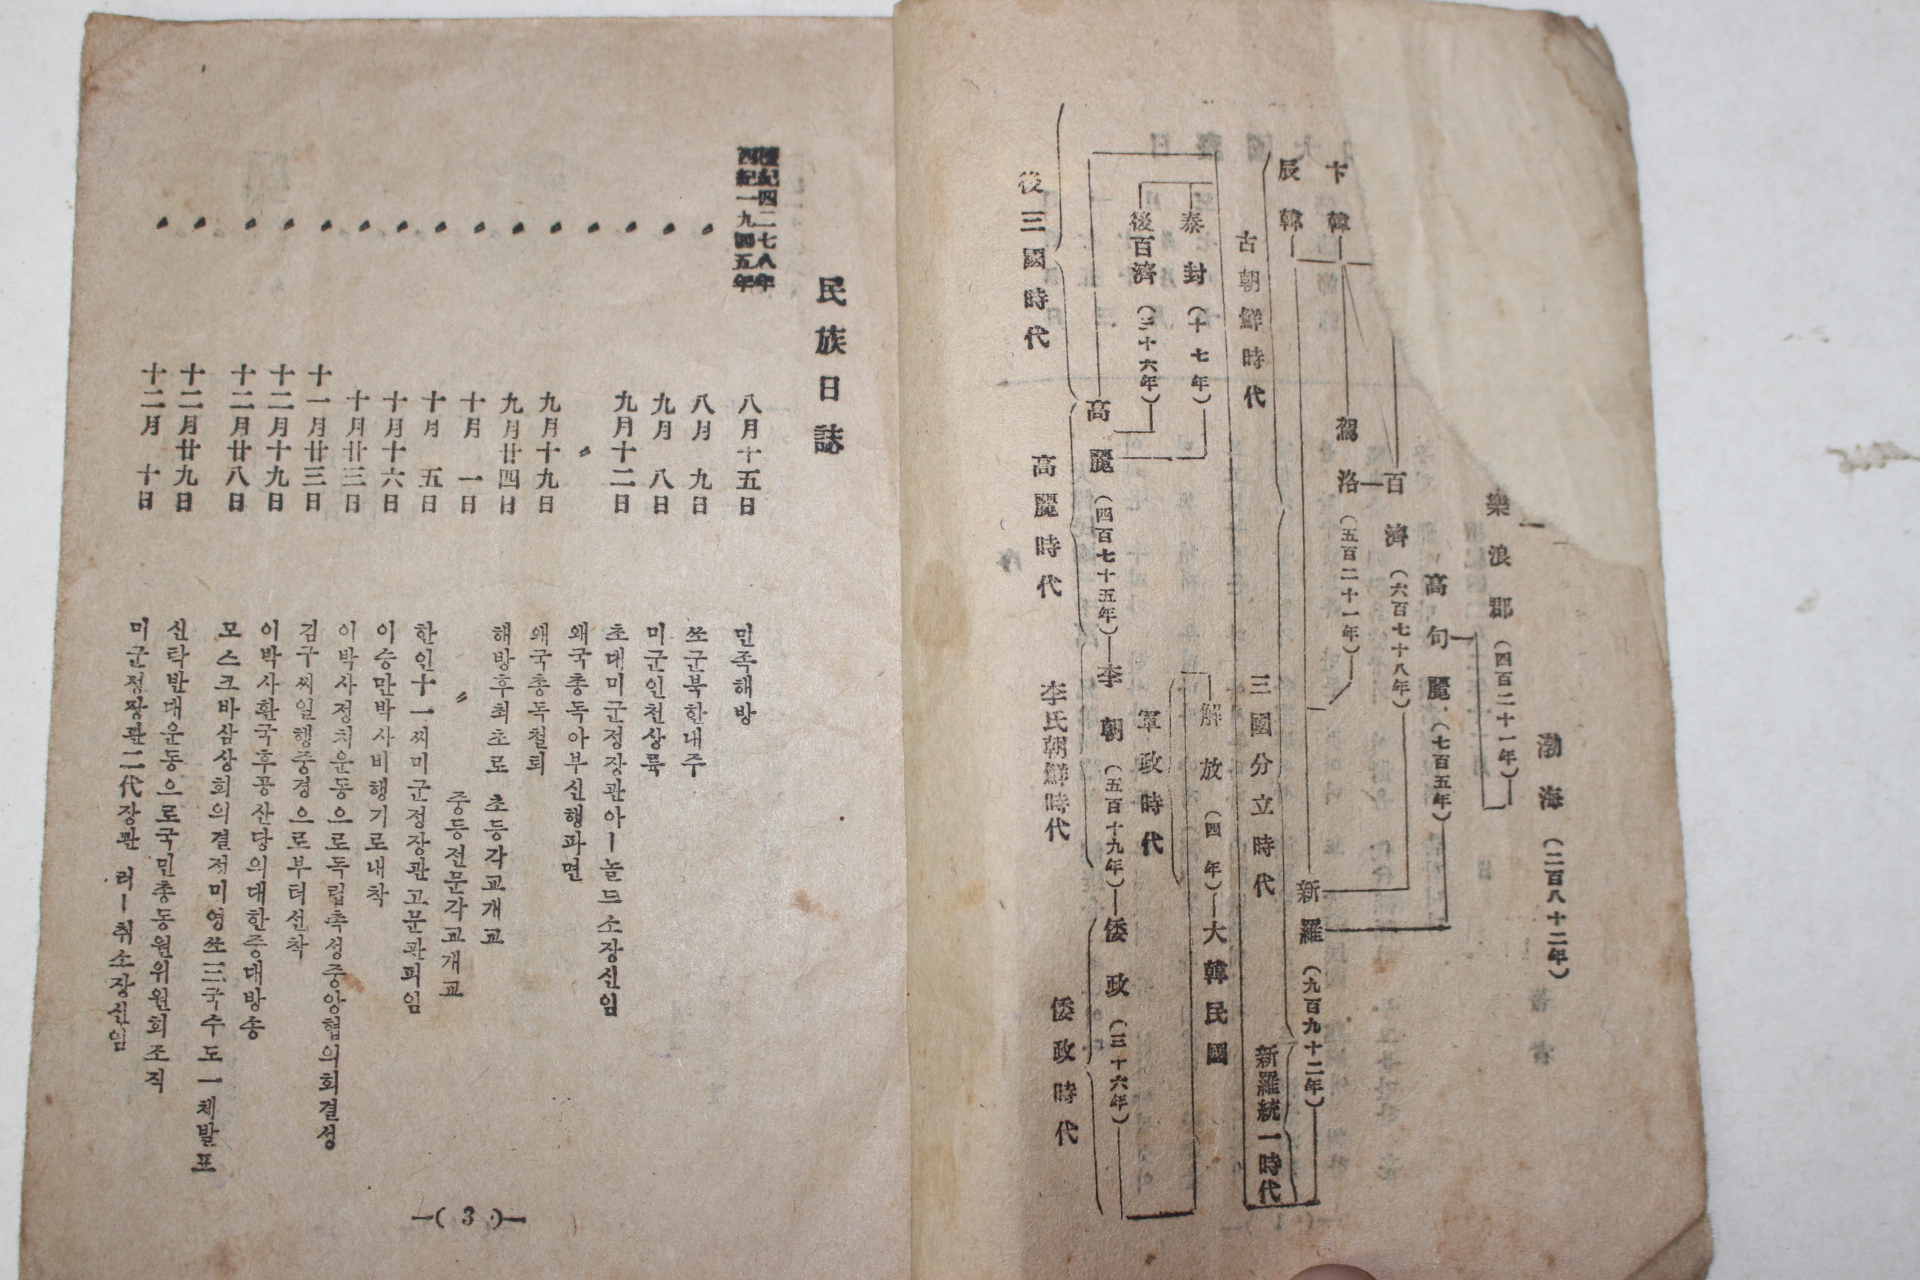 卞韓
辰韓
樂浪郡 (四百二十一年)
渤海 (二百八十二年)
高句麗 (七百五年)
百濟 (六百七十八年)
駕洛 (五百二十一年)
新羅 (九百九十二年)
古朝鮮時代
三國分立時代
新羅統一時代
泰封 (十七年)
後百濟 (三十六年)
解放 (四年)
大韓民國
軍政時代
高麗 (四百七十五年)
李朝 (五百十九年)
倭政 (三十六年)
後三國時代
高麗時代
李氏朝鮮時代
倭政時代
民族日誌
檀紀四二七八年
西紀一九四五年
八月十五日 민족해방
八月 九日 쏘군북한내주
九月 八日 미군인천상륙
九月十二日 초대미군정장관아ー놀드소장신임
〃 왜국총독아부신행파면
九月十九日 왜국총독철퇴
九月廿四日 해방후최초로 초등각교개교
十月 一日 중등전문각교개교
十月 五日 한인十一씨미군정장관고문관피임
十月十六日 이승만박사비행기로내착
十月廿三日 이박사정치운동으로독립촉성중앙협의회결성
十一月廿三日 김구씨일행중경으로부터선착
十二月十九日 이박사환국후공산당의대한중대방송
十二月廿八日 모스크바삼상회의결정미영쏘三국수도一체발표
十二月廿九日 신탁반대운동으로국민총동원위원회조직
十二月 十日 미군정장관二代장관 러ー취소장신임
ー( 3 )ー